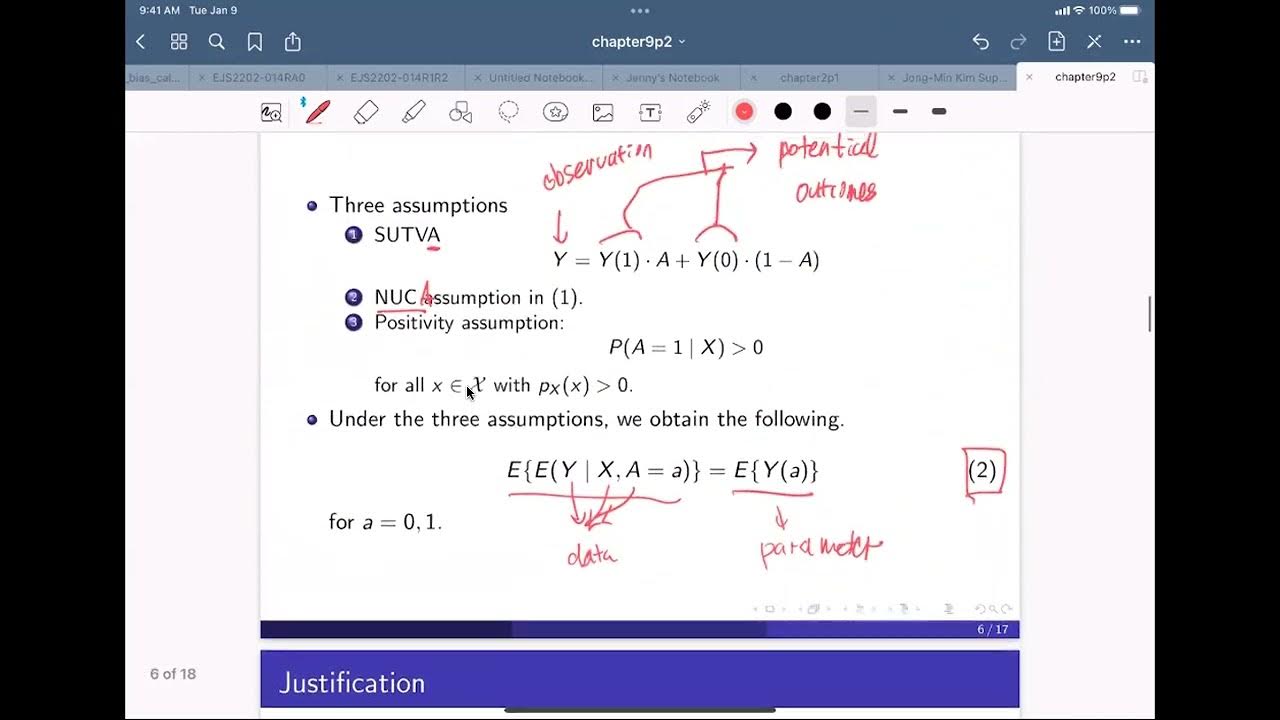 9:41 AM Tue Jan 9
100%
chapter9p2
_bias_cal...
EJS2202-014RA0
EJS2202-014R1R2
Untitled Notebook...
Jenny's Notebook
chapter2p1
Jong-Min Kim Sup...
chapter9p2
observation
potential
outcomes
• Three assumptions
1 SUTVA
Y = Y(1) · A + Y(0) · (1 − A)
2 NUC Assumption in (1).
3 Positivity assumption:
P(A = 1 | X) > 0
for all x ∈ 𝒳 with p_X(x) > 0.
• Under the three assumptions, we obtain the following.
E{E(Y | X, A = a)} = E{Y(a)} (2)
for a = 0, 1.
data
parameter
6 / 17
6 of 18
Justification